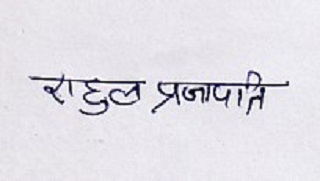 राहुल प्रजापति